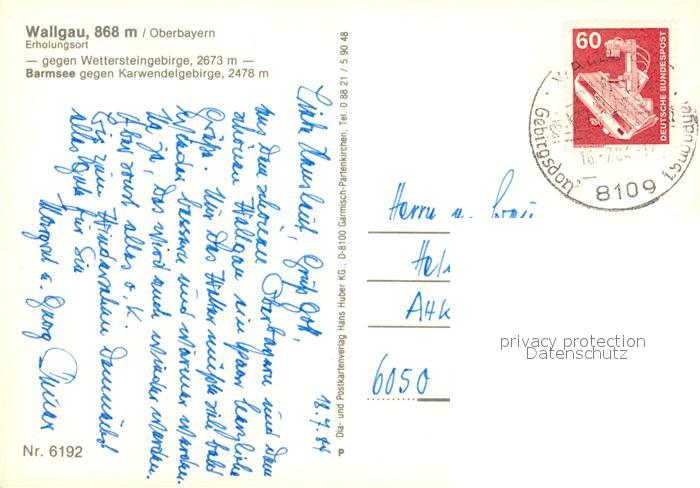 Wallgau, 868 m / Oberbayern
Erholungsort
— gegen Wettersteingebirge, 2673 m —
Barmsee gegen Karwendelgebirge, 2478 m
18.7.84
Liebe Grüß Gott,
aus dem schönen Oberbayern und dem
schönen Wallgau ein paar herzliche
Grüße. Nur das Wetter müßte viel bald
wieder besser und wärmer werden.
Na ja, das wird auch wieder werden.
Aber sonst alles o.K.
Bis zum Wiedersehen
alles Gute für Sie
Margret u. Georg
Nr. 6192
Dia- und Postkartenverlag Hans Huber KG., D-8100 Garmisch-Partenkirchen, Tel. 0 88 21 / 5 90 48
P
60
DEUTSCHE BUNDESPOST
8109
Herrn u. Frau
6050
privacy protection
Datenschutz